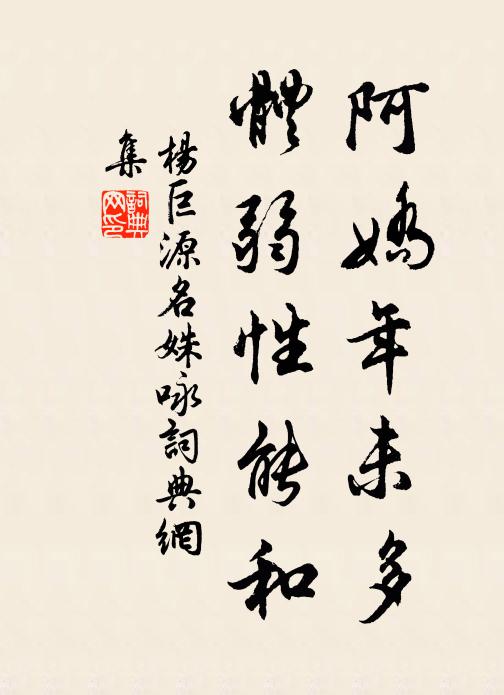 阿嬌年未多
體弱性能和
楊巨源名姝咏詞典網
集
詞典網印